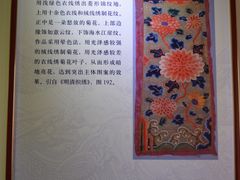 用浅绿色衣线绣出菱形锦纹地，
上用十余色衣线和绒线绣制花纹，
正中是一朵怒放的菊花，上部边
缘饰如意云纹，下饰海水江崖纹，
花纹采用晕色法，用光泽感较强
的绒线绣制菊花，用光泽感较差
的衣线绣菊花叶子，从而形成暗
地亮花，达到突出主体图案的效
果。引自《明清织绣》，图 192。